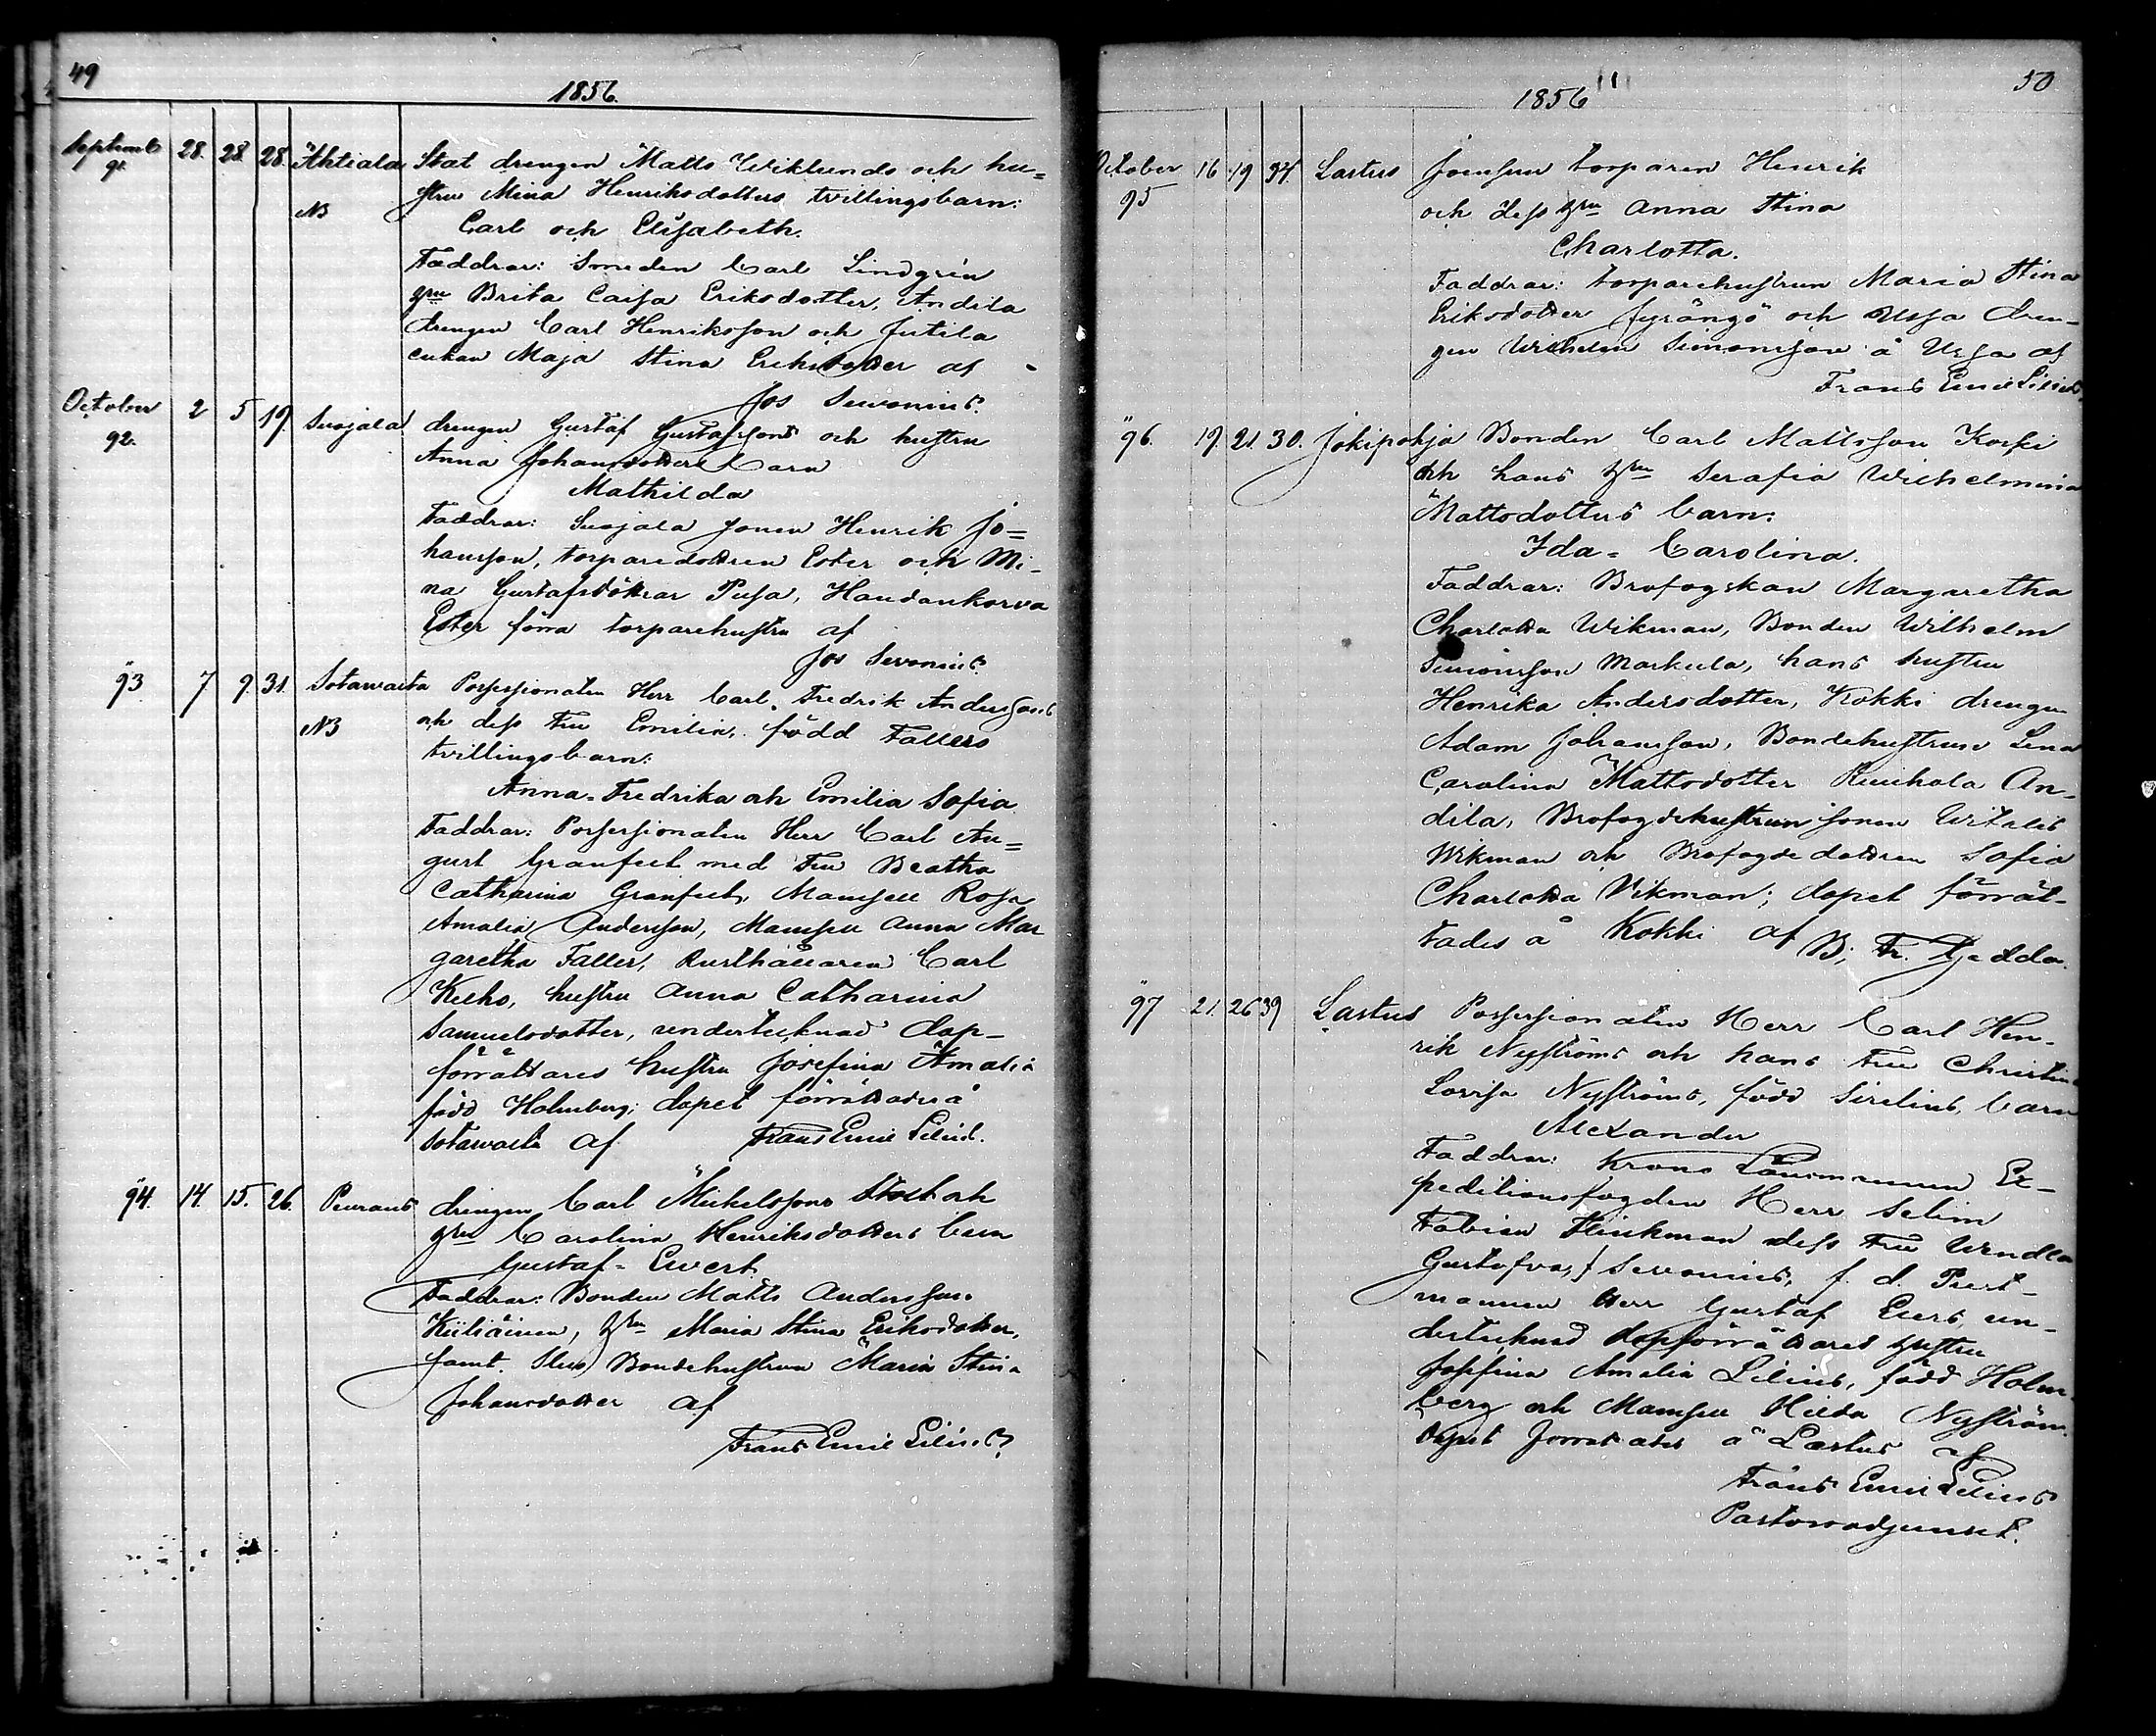 49
1856.
Septemb 28. 28. 28. Ähtiala Stat drengen Matts Wiklunds och hu=
91.
stru Mina Henriksdotters tvillingsbarn:
NB
Carl och Elisabeth.
Faddrar: Smeden Carl Lindgrén
Brita Caisa Eriksdotter, Andila
drengen Carl Henriksson och Jutila
enkan Maja Stina Eriksdotter af
Jos Sevonius.
October 2 5 19. Suojala drengen Gustaf Gustafssons och hustru
92.
Anna Johansdotters barn
Mathilda
Faddrar: Suojala sonen Henrik Jo=
hansson, torparedottren Ester och Mi-
na Gustafsdöttrar Pusa, Haudankorva
Ester förra torparehustru af
Jos Sevonius
"93. 7 9. 31. Sotawaeta Possessionaten Herr Carl Fredrik Anderssons
NB
och dess Fru Emilia, född Fallers
tvillingsbarn:
Anna-Fredrika och Emilia Sofia
Faddrar: Possessionaten Herr Carl Au=
gust Granfelt med Fru Beatha
Catharina Granfelt, Mamsell Rosa
Amalia Andersson, Mamsell Anna Mar
garetha Faller, Rusthållaren Carl
Keeho, hustru Anna Catharina
Samuelsdotter, undertecknad dop-
förrättares hustru Josefina Amalia
född Holmberg; dopet förrättades å
Sotawaeta af Frans Emil Lilius.
"94. 14. 15. 26. Peurans drengen Carl Michelssons Stolt och
Carolina Henriksdotters barn
Gustaf-Evert
Faddrar: Bonden Matts Andersson
Kiiliäinen, Maria Stina Eriksdotter,
samt Bondehustrun Maria Stina
Johansdotter af
Frans Emil Lilius
50
1856
October 16 19 34. Lastus torparen Henrik
95
och dess Anna Stina
Charlotta.
Faddrar: torparehustrun Maria Stina
Eriksdotter Jyrängö och Ussa dren-
gen Wilhelm Simonsson å Ussa af
Frans Emil Lilius.
"96. 19. 21. 30. Jokipohja Bonden Carl Mattsson Koski
och hans Serafia Wilhelmina
Mattsdotters barn:
Ida-Carolina.
Faddrar: Brofogskan Margaretha
Charlotta Wikman, Bonden Wilhelm
Simonsson Markula, hans hustru
Henrika Andersdotter, Kokki drengen
Adam Johansson, Bondehustrun Lena
Carolina Mattsdotter An-
dila, Brofogdehustrun sonen Witalis
Wikman och Brofogde dottren Sofia
Charlotta Vikman; dopet förrät-
tades å Kokki af B. Fr. Gadda.
"97 21. 26 39 Lastus Possessionaten Herr Carl Hen-
rik Nyströms och hans Fru Christina
Lovisa Nyströms, född Sirelius, barn
Alexander
Faddrar: Krono Länsmannen Ex-
peditionsfogden Herr Selim
Fabian Flinkman dess Fru Wendla
Gustafva, f. Sevonius, f. d.
mannen Herr Gustaf un-
dertecknad dopförrättares hustru
Josefina Amalia Lilius, född Holm-
berg och Mamsell Hilda Nyström.
dopet förrättades å Lastus af
Frans Emil Lilius
Pastorsadjunkt.